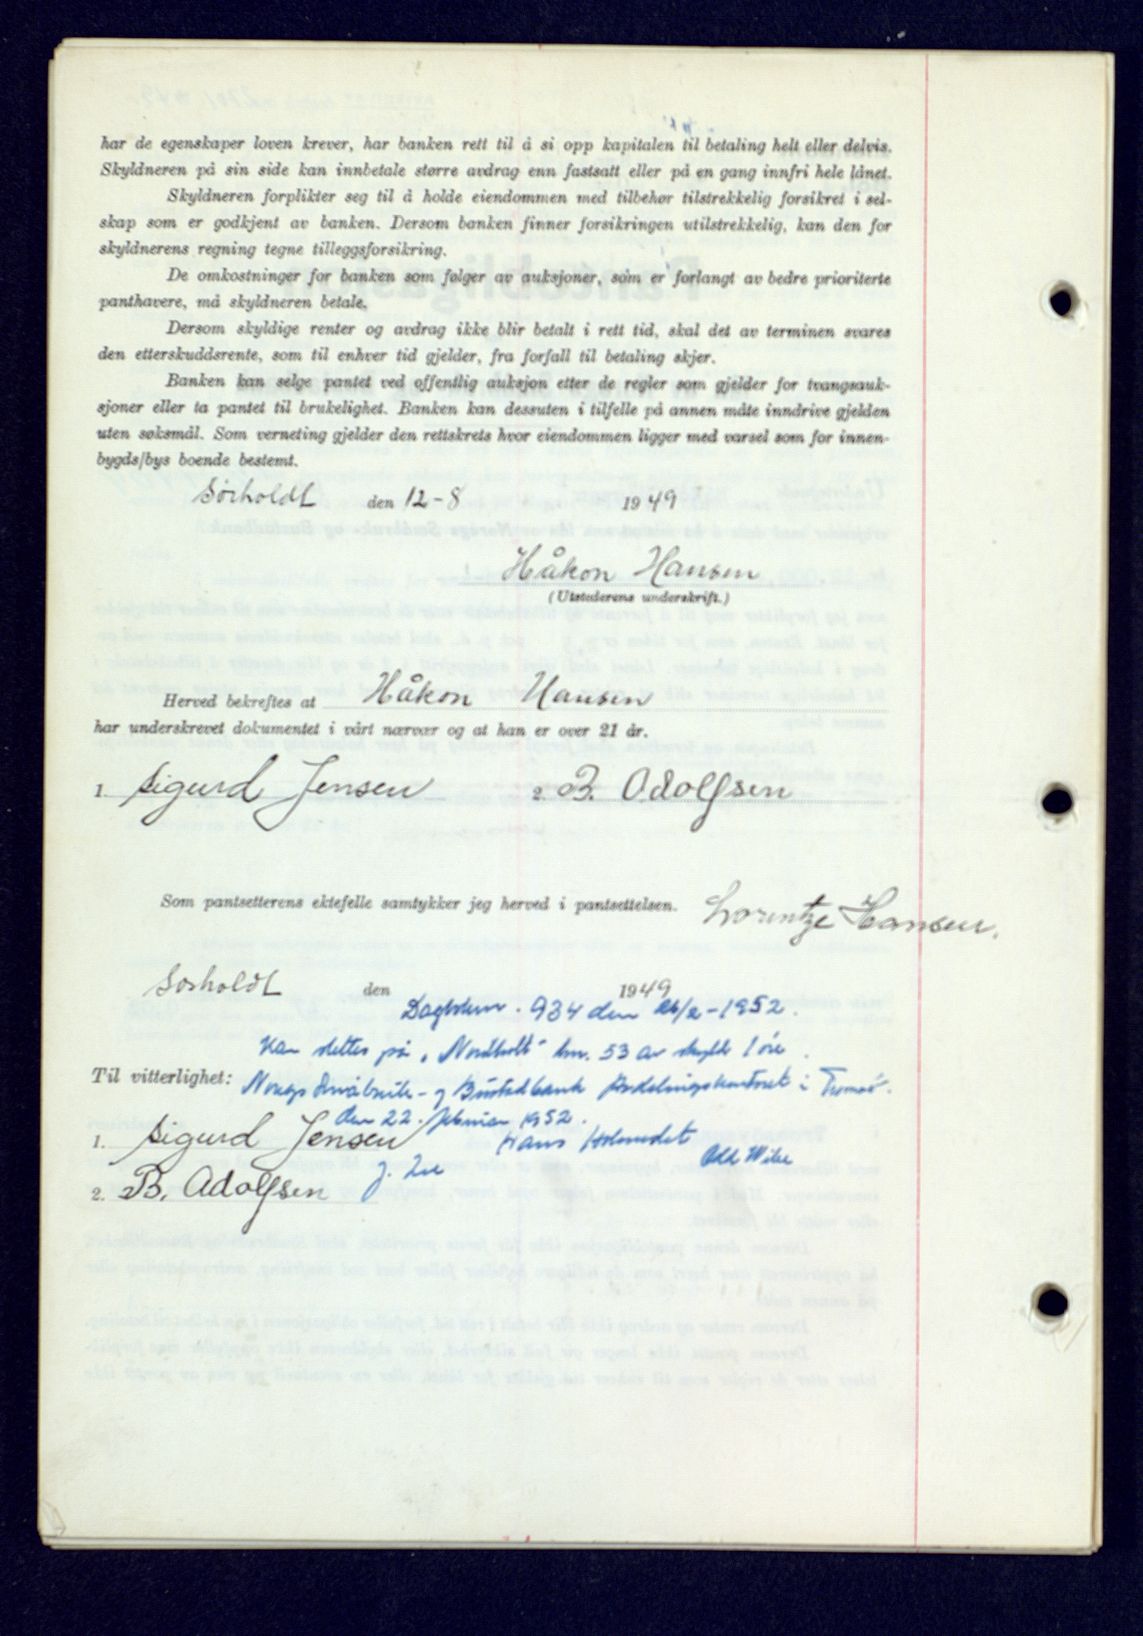 har de egenskaper loven krever, har banken rett til å si opp kapitalen til betaling helt eller delvis.
Skyldneren på sin side kan innbetale større avdrag enn fastsatt eller på en gang innfri hele lånet.
Skyldneren forplikter seg til å holde eiendommen med tilbehør tilstrekkelig forsikret i sel-
skap som er godkjent av banken. Dersom banken finner forsikringen utilstrekkelig, kan den for
skyldnerens regning tegne tilleggsforsikring.
De omkostninger for banken som følger av auksjoner, som er forlangt av bedre prioriterte
panthavere, må skyldneren betale.
Dersom skyldige renter og avdrag ikke blir betalt i rett tid, skal det av terminen svares
den etterskuddsrente, som til enhver tid gjelder, fra forfall til betaling skjer.
Banken kan selge pantet ved offentlig auksjon etter de regler som gjelder for tvangsauk-
sjoner eller ta pantet til brukelighet. Banken kan dessuten i tilfelle på annen måte inndrive gjelden
uten søksmål. Som verneting gjelder den rettskrets hvor eiendommen ligger med varsel som for innen-
bygds/bys boende bestemt.
Sørholdt den 12-8 1949
Håkon Hansen
(Utstederens underskrift.)
Herved bekreftes at Håkon Hansen
har underskrevet dokumentet i vårt nærvær og at han er over 21 år.
1. Sigurd Jensen 2. B. Adolfsen
Som pantsetterens ektefelle samtykker jeg herved i pantsettelsen. Lorentze Hansen.
Sørholdt den 1949
Dagboknr. 934 den 26/2-1952.
Kan slettes på "Nordholt" bnr. 53 av skyld 1 øre.
Til vitterlighet: Norges Småbruk- og Bustadbank Avdelingskontoret i Tromsø.
den 22. februar 1952.
1. Sigurd Jensen Hans
2. B. Adolfsen J.